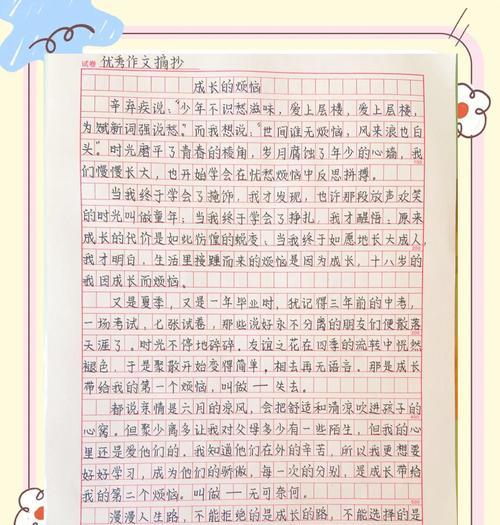 试卷 优秀作文摘抄
成长的烦恼
辛弃疾说:“少年不识愁滋味,爱上层楼,爱上层楼,
为赋新词强说愁。”而我想说,“世间谁无烦恼,风来浪也白
头”。时光磨平了青春的棱角,岁月腐蚀了年少的心墙,我
们慢慢长大,也开始学会在忧愁烦恼中反思拼搏。
当我终于学会了掩饰,我才发现,也许那段放声欢笑
的时光叫做童年;当我终于学会了挣扎,我才醒悟、原来
成长的代价是如此彷徨的蜕变、当我终于如愿地长大成人,
我才明白,生活里接踵而来的烦恼是因为成长,十八岁的
我因成长而烦恼。
又是夏季,又是一年毕业时,犹记得三年前的中考,
一场考试,七张试卷,那些说好永不分离的朋友们便散落
天涯了。时光不停地碎碎。友谊之花在四季的流转中恍然
褪色,于是聚散开始变得简单。相去再无语言。那是成长
带给我的第一个烦恼,叫做一失去。
都说亲情是六月的凉风,会把舒适和清凉吹进孩子的
心窝。但聚少离多让我对父母多少有一些陌生,但我的心
里还是爱他们的。我知道他们在外的辛苦,所以我更想要
好好学习,成为他们的骄傲,每一次的分别,是成长带给
我的第二个烦恼。叫做一无可奈何。
漫漫人生路,不能拒绝的是成长的路,不能选择的是